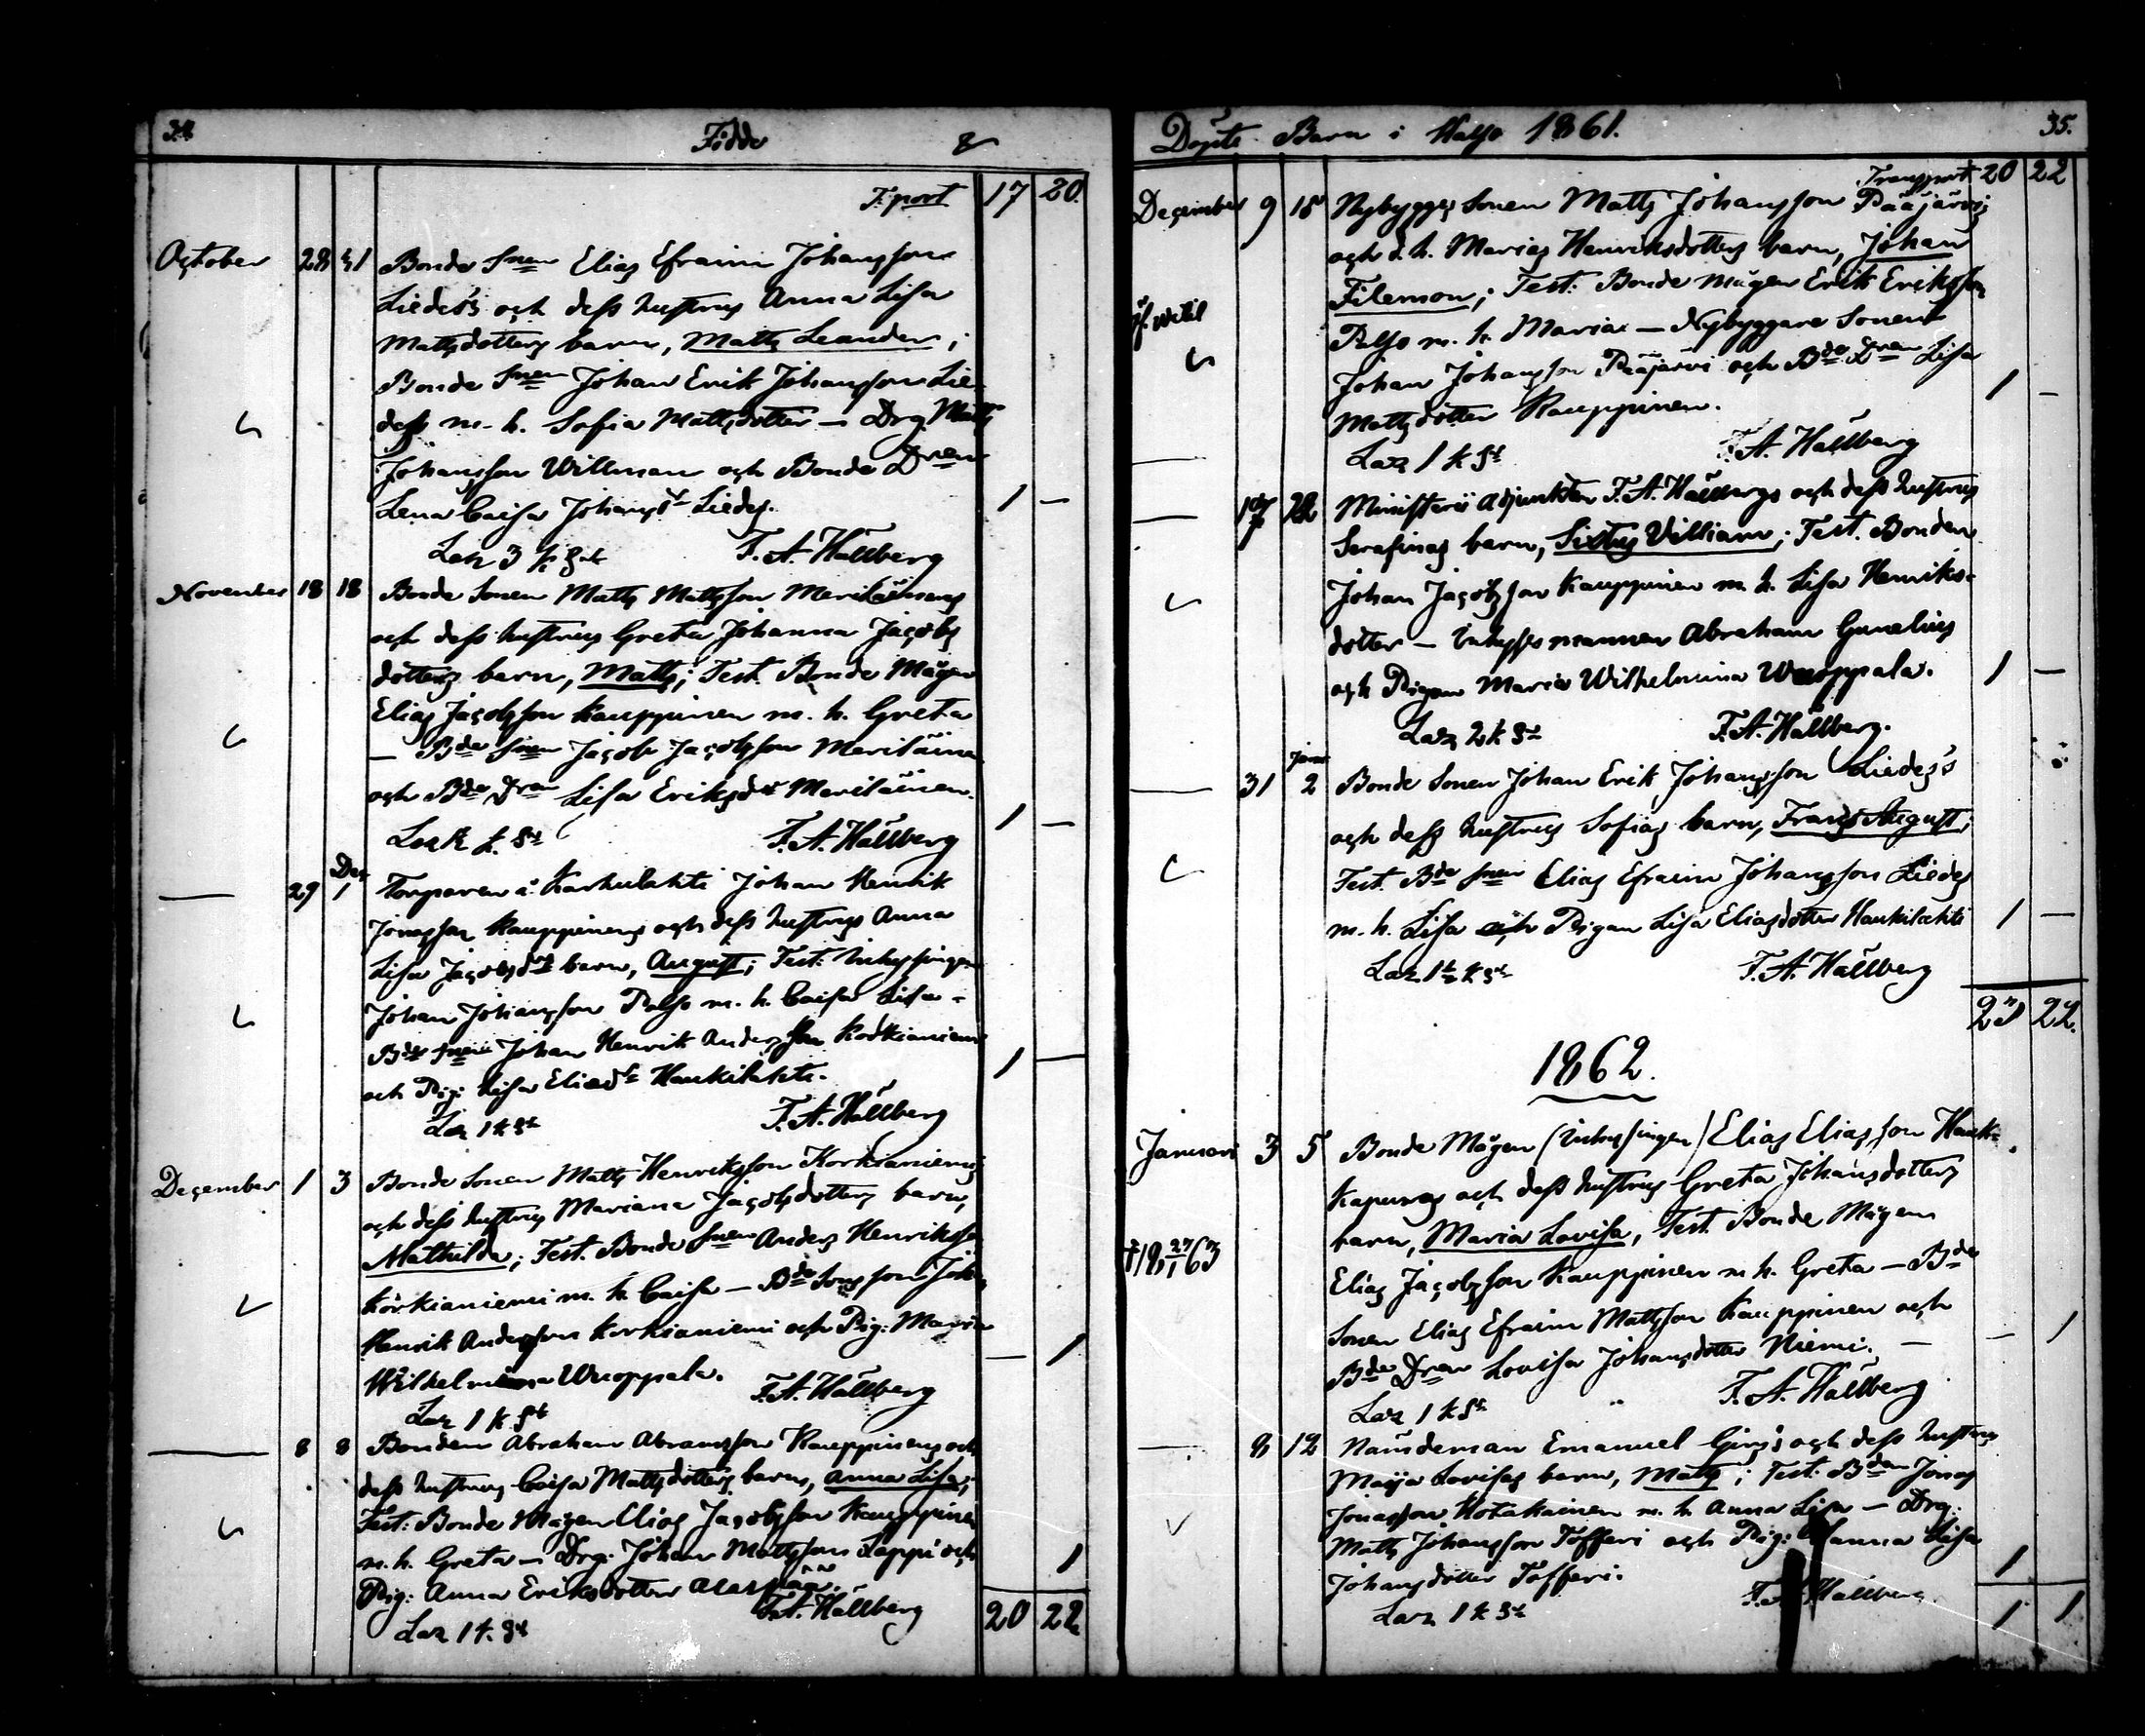 34.
Födde &
T.port 17 20.
October 28 31 Bonde Snen Elias Efraim Johansson
Liedes's och dess hustrus Anna Lisa
Mattsdotters barn, Matts Leander;
Bonde Snen Johan Erik Johansson Lie-
des m. h. Sofia Mattsdotter – Drg Matts
Johansson Willman och Bonde Dren
Lena Caisa Johansdr Liedes. 1 –
Laz 3 k. st F. A. Hällberg
November 18 18 Bonde Sonen Matts Mattsson Meriläinens
och dess hustrus Greta Johanna Jacobs
dotters barn, Matts; Test. Bonde Mågen
Elias Jacobsson Kauppinen m. h. Greta
– Bde Snen Jacob Jacobsson Meriläinen
och Bde Dren Lisa Eriksdr Meriläinen. 1 –
F. A. Hällberg
– 29 Dec 1 Torparen å Karhulahti Johan Henrik
Jonasson Kauppinens och dess hustrus Anna
Lisa Jacobsdrs barn, August; Test: Inhysingen
Johan Johansson Palso m. h. Caisa Lisa –
Bde Snen Johan Henrik Andersson Korkianiemi
och Pig: Lisa Eliasdr Haukilahti. 1 –
Laz 1 k st F. A. Hällberg
December 1 3 Bonde Sonen Matts Henriksson Korkianiemis
och dess hustrus Mariana Jacobsdotters barn,
Mathilda; Test. Bonde Snen Anders Henriksson
Korkianiemi m. h. Caisa – Bde Sons son Johan
Henrik Andersson Korkianiemi och Pig: Maria
Wilhelmina Wuoppala. – 1
Laz 1 k st F. A. Hällberg
– 8 8 Bonden Abraham Abramsson Kauppinens och
dess hustrus Caisa Mattsdotters barn, Anna Lisa;
Test: Bonde Mågen Elias Jacobsson Kauppinen
m. h. Greta – Drg: Johan Mattsson Lappi och
Pig: Anna Eriksdotter 1
F. A. Hällberg
Laz 1 k. st 20 22
Döpte Barn i Halso 1861. 35.
Transport 20 22
December 9 15 Nybygges Sonen Matts Johansson Pääjärvis
och d. h. Marias Henriksdotters barn, Johan
Filemon; Test: Bonde Mågen Erik Eriksson
Palso m. h. Maria – Nybyggare Sonen
Johan Johansson Pääjärvi och Bde Dren Lisa
Mattsdotter Kauppinen. 1 –
Laz 1 k st F. A. Hällberg
– 22 Ministerii Adjunkten F. A. Hällbergs och dess hustrus
Serafinas barn, Sixtus William; Test. Bonden
Johan Jacobsson Kauppinen m. h. Lisa Henriks-
dotter – Inhysesmannen Abraham Gunelius
och Pigan Maria Wilhelmina Wuoppala. 1 –
Laz 2 k st F. A. Hällberg.
– 31 Janr 2 Bonde Sonen Johan Erik Johansson Liedes's
och dess hustrus Sofias barn, Frans August;
Test. Bde Snen Elias Efraim Johansson Liedes
m. h. Lisa och Pigan Lisa Eliasdotter Haukilahti 1 –
F. A. Hällberg
23 22.
1862.
Januari 3 5 Bonde Mågen (Inhysingen) Elias Eliasson Hauk-
kapuras och dess hustrus Greta Johansdotters
barn, Maria Lovisa, Test. Bonde Mågen
Elias Jacobsson Kauppinen m. h. Greta – Bde
Sonen Elias Efraim Mattsson Kauppinen och
Bde Dren Lovisa Johansdotter Niemi. – – 1
Laz 1 k st F. A. Hällberg
– 8 12 Nämdeman Emanuel och dess hustrus
Maija Lovisas barn, Matts; Test: Bden Jonas
Jonasson Hotakainen m. h. Anna Lisa – Drg:
Matts Johansson Töfferi och Pig: Sanna Lisa
Johansdotter Töfferi. 1
Laz 1 k st F. A. Hällberg
1 1